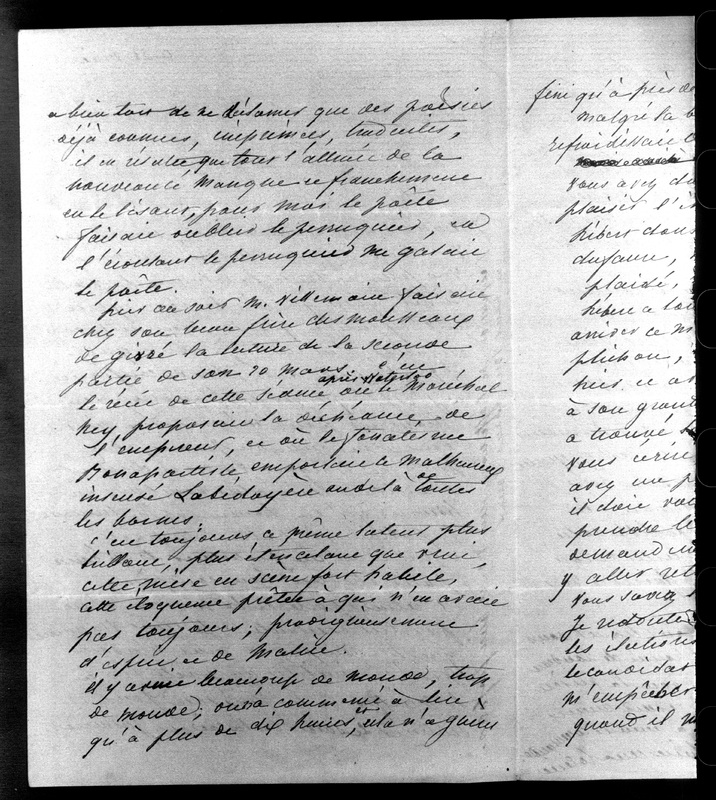 a bien tort de ne réserver que des poésies
déjà connues, imprimées, traduites,
il en résulte que tout l'attrait de la
nouveauté manque et franchement
en le lisant, pour moi le poète
faisait oublier le perruquier, en
l'écoutant le perruquier me gatait
le poète.
hier au soir M. Villemain faisait
chez son beau frère desmousseaux
de givré la lecture de la seconde
partie de son 20 mars, c'est
après Waterloo
le récit de cette séance où le Maréchal
Ney, proposait la déchéance de
l'empereur, et où le fanatisme
Bonapartiste, emportait le malheureux
insensé Labédoyère au delà de toutes
les bornes.
c'est toujours ce même talent plus
brillant, plus étincelant que vrai,
cette mise en scène fort habile,
cette éloquence prêtée à qui n'en avait
pas toujours; prodigieusement
d'esprit et de malice.
il y avait beaucoup de monde, trop
de monde, on a commencé à lire
qu'à plus de dix heures, et on n'a guère
fini qu'à près de
malgré la
refroidissait
vous avez du
plaisir l'é
hébert dans
dufaure,
plaidé,
hébert a
arriver ce m
plichon,
hier, ce
à son grand
a trouvé
vous écrire
avez un p
il doit
prendre le
demand
y aller
vous savez
Je redoute
les
le candidat
m'empêcher
quand il